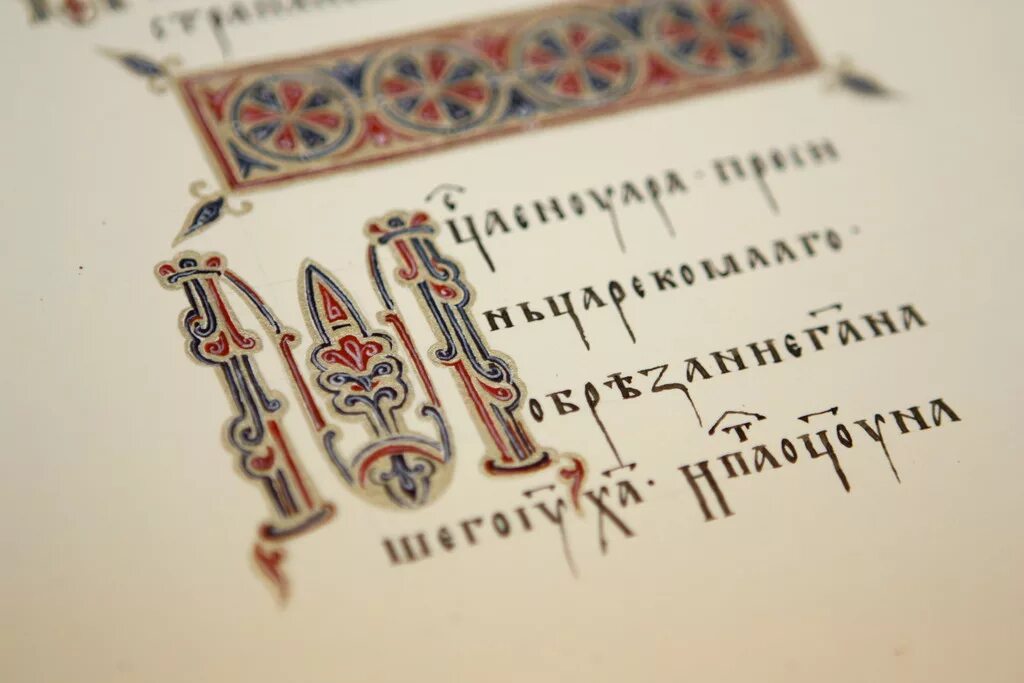 страш
Мⷭ҇цаеноуара · проси
ньцарекомлаго ·
обрѣзаннегана
шегоіу ха · ипⷮлоцоуна